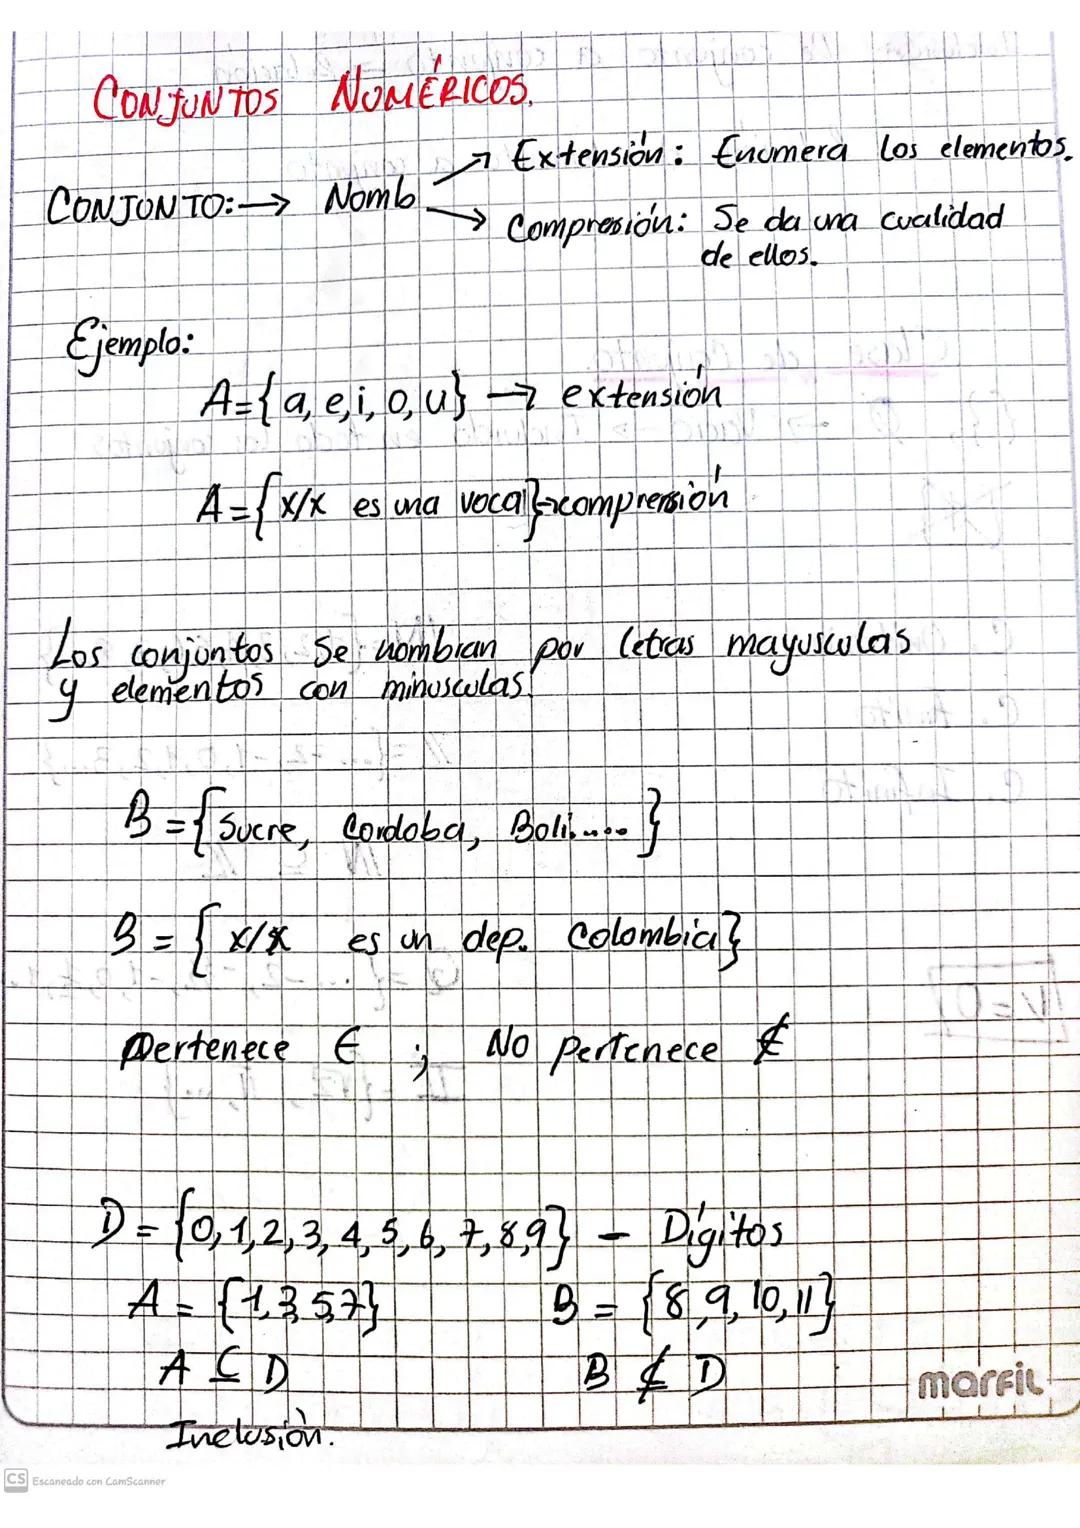 CONJUNTOS NUMÉRICOS.
Extensión: Enumera los elementos.
CONJUNTO:→ Nomb
Compresión: Se da una cualidad
de ellos.
Ejemplo:
A={a, e, i, o, u} → extensión
A={x/x es una vocal}→comprensión
Los conjuntos Se nombran por letras mayusculas
y elementos con minusculas.
B={Sucre, Cordoba, Boli.....}
B={x/x es un dep. Colombia}
Pertenece ∈ ; No pertenece ∉
D={0,1,2,3,4,5,6,7,8,9} – Dígitos
A={1,3,5,7} B={8,9,10,11}
A ⊆ D B ⊄ D
marfil
Inclusión.
CS Escaneado con CamScanner